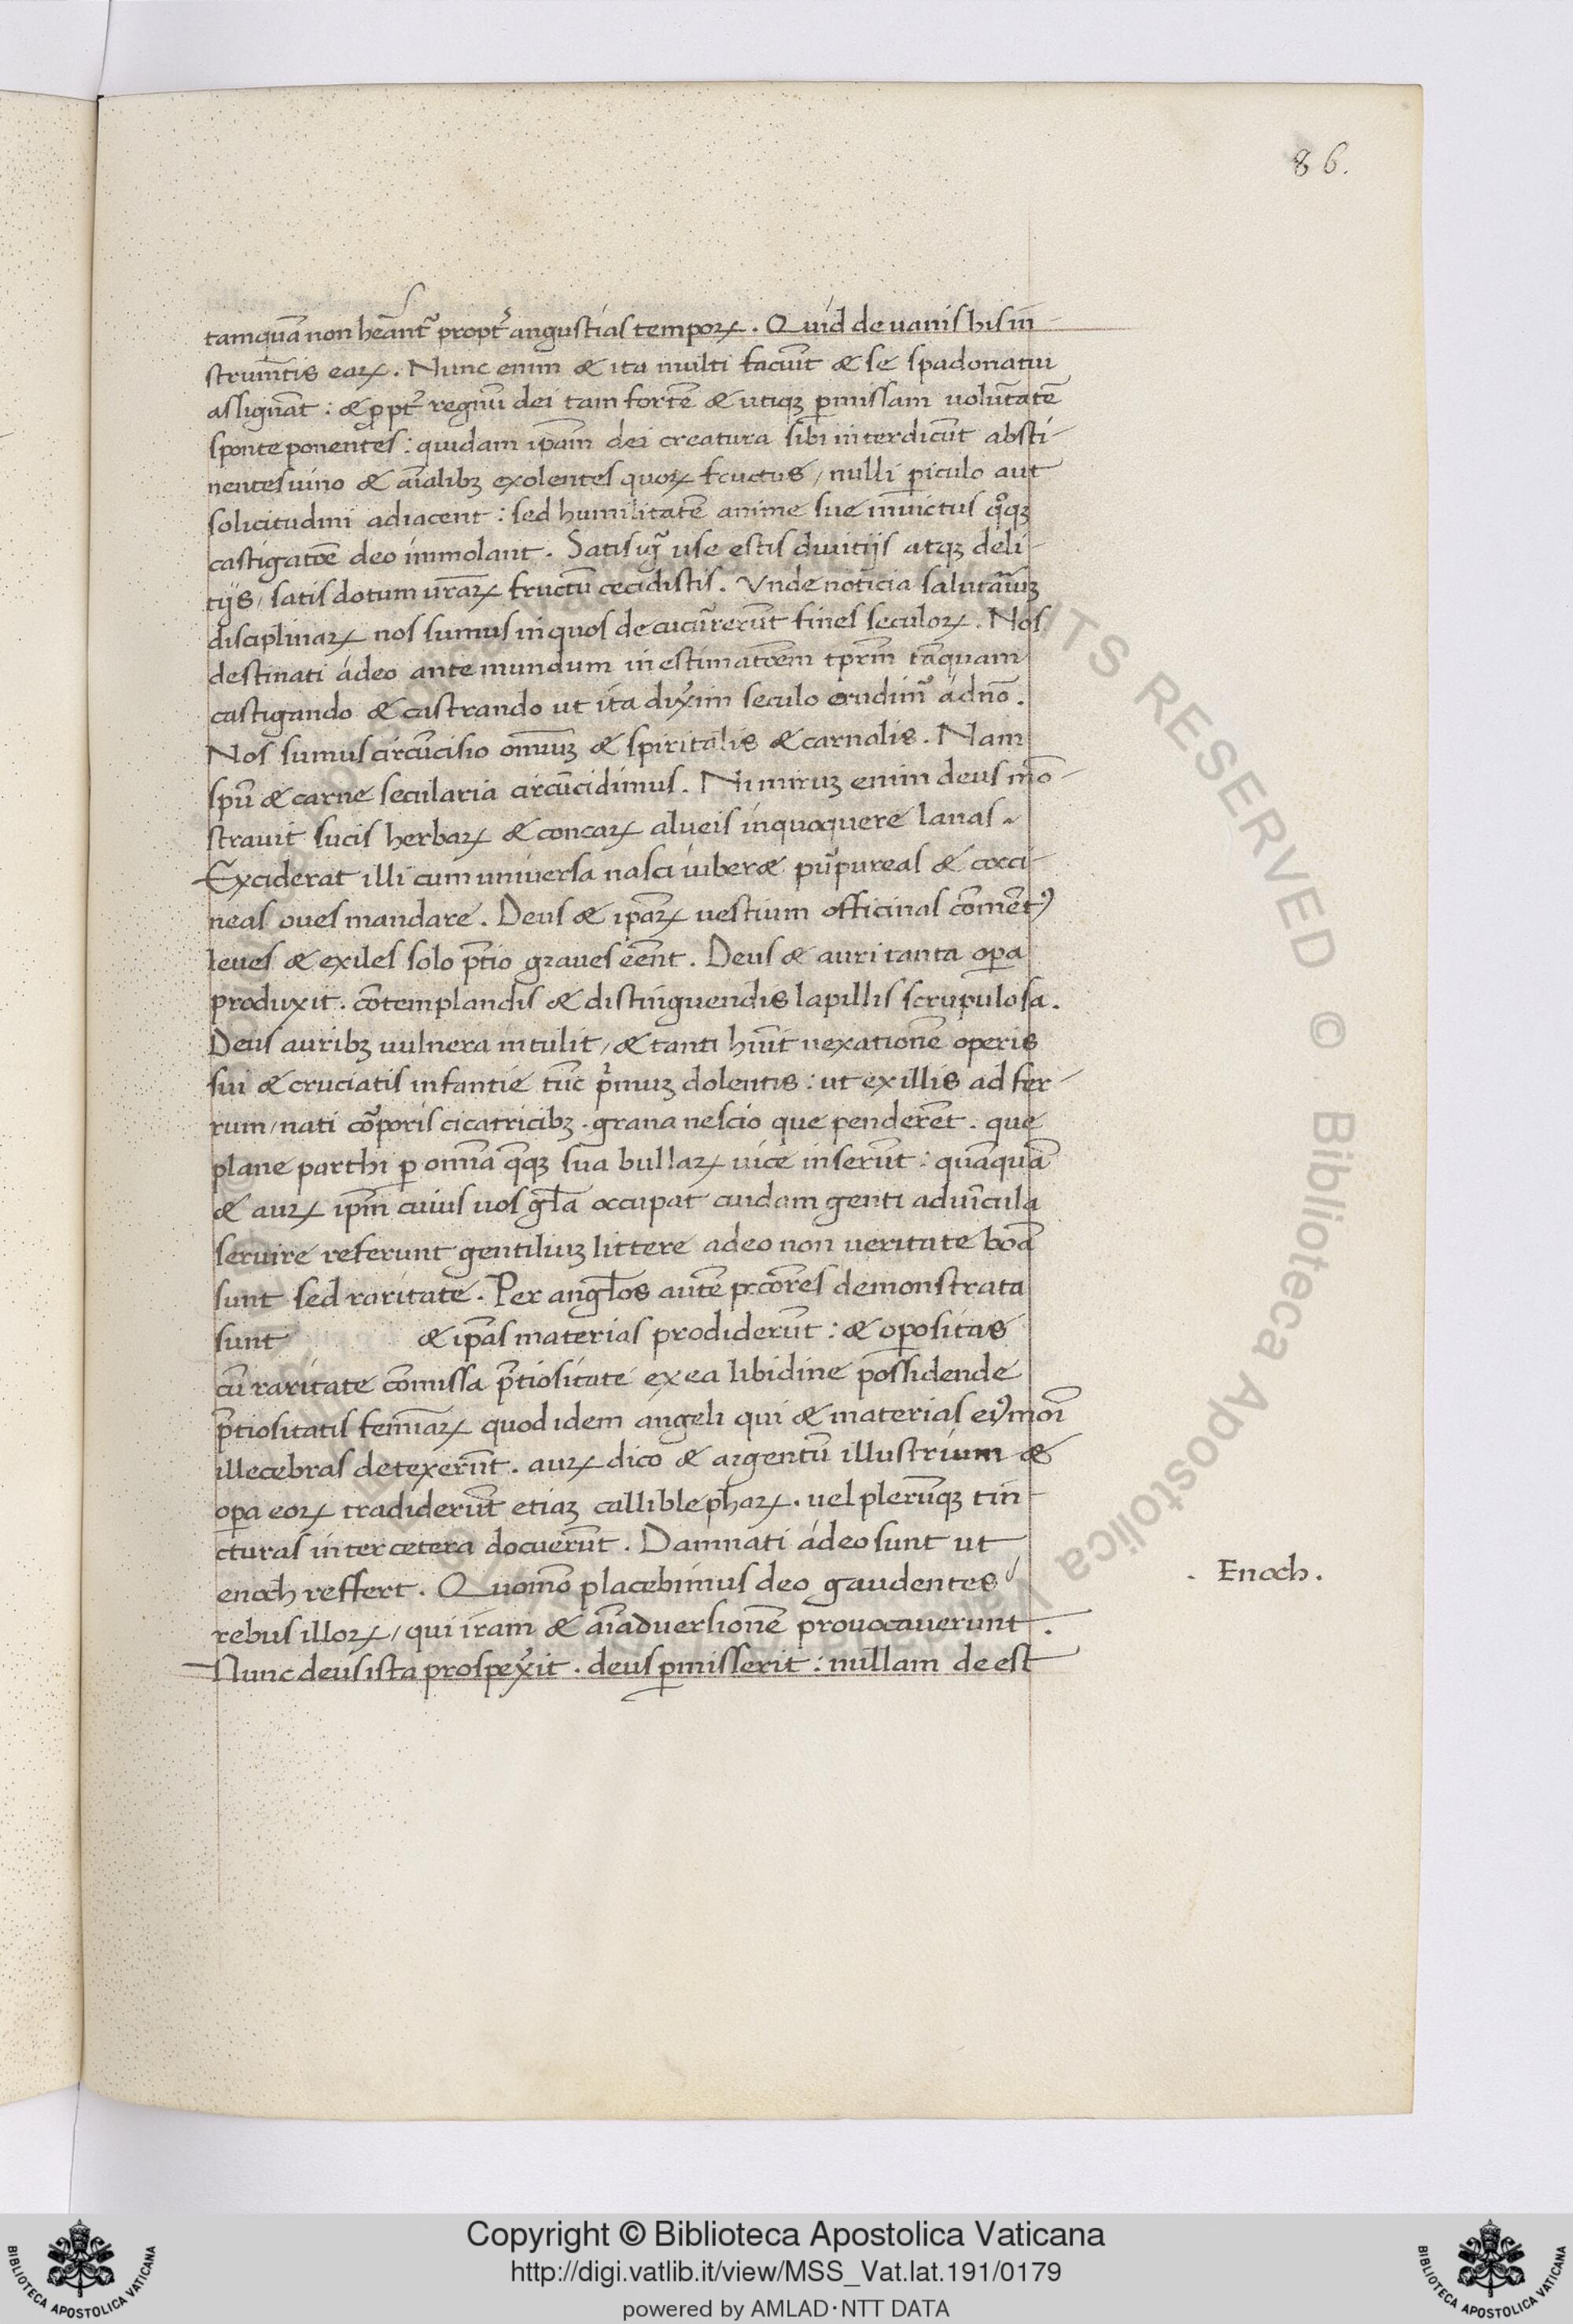 86.
tamquā non heant᷑ propt᷑ angustias tempoꝝ. Quid de vanis his in-
strumētis eaꝝ. Nunc enim & ita multi faciūt & se spadonatui
assignāt: & ꝓpt᷑ regnū dei tam fortē & utiqꝫ ꝑmissam volūtatē
sponte ponentes: quidam ip̄am dei creatura sibi interdicūt absti-
nentes vino & aīalibꝫ exolentes quoꝝ fructus, nulli ꝑiculo aut
solicitudini adiacent: sed humilitatē anime sue in victus qͦqꝫ
castigatōe deo immolant. Satis igr̄ use estis divitijs atqꝫ deli-
tijs, satis dotum vr̄aꝝ fructū cecidistis. Vnde noticia salutariuꝫ
disciplinaꝝ nos sumus in quos decucurrerūt fines seculoꝝ. Nos
destinati ádeo ante mundum in estimatōem tp̄rm̄ tāquam
castigando & castrando ut ita dixerim seculo erudimᷣ ádnō.
Nos sumus circūcisio omniuꝫ & spiritalis & carnalis. Nam
spū & carne secularia circūcidimus. Ni miruꝫ enim deus mō-
stravit sucis herbaꝝ & concaꝝ alveis inquoquere lanas
Exciderat illi cum universa nasci iuberæ pur̄pureas & cocci-
neas oves mandare. Deus & ip̄aꝝ vestium officinas cōmētꝰ
leves & exiles solo p̄tio graves eēnt. Deus & auri tanta oꝑa
produxit. cōtemplandis & distinguendis lapillis scrupulosa.
Deus auribꝫ vulnera intulit, & tanti hūit vexationē operis
sui & cruciatis infantie tūc p̄muꝫ dolentis: ut ex illis ad fer-
rum, nati cōꝑoris cicatricibꝫ. grana nescio que penderēt. que
plane parthi ꝑ omīa qͣqꝫ sua bullaꝝ vice inserūt: quāquā
& auꝝ ip̄m cuius vos gl̄a occupat cuidam genti ad vīcula
servire referunt gentiliuꝫ littere adeo non veritate boā
sunt sed raritate. Per angl̄os autē pͨcōres demonstrata
sunt & ip̄as materias prodiderūt: & oꝑositas
cū raritate cōmissa p̄tiositate ex ea libidine possidende
p̄tiositatis femīaꝝ quod idem angeli qui & materias eiꝰmōi
illecebras detexerūt. auꝝ dico & argentū illustrium &
oꝑa eoꝝ tradiderūt etiaꝫ callible phaꝝ. vel plerūqꝫ tin-
cturas inter cetera docuerūt. Damnati ádeo sunt ut
enoch reffert. Quomō placebimus deo gaudentes
rebus illoꝝ, qui iram & aīadversionē provocaverunt.
Nunc deus ista prospexit. deus ꝑmisserit: nullam de est
. Enoch.
Copyright © Biblioteca Apostolica Vaticana
http://digi.vatlib.it/view/MSS_Vat.lat.191/0179
powered by AMLAD·NTT DATA